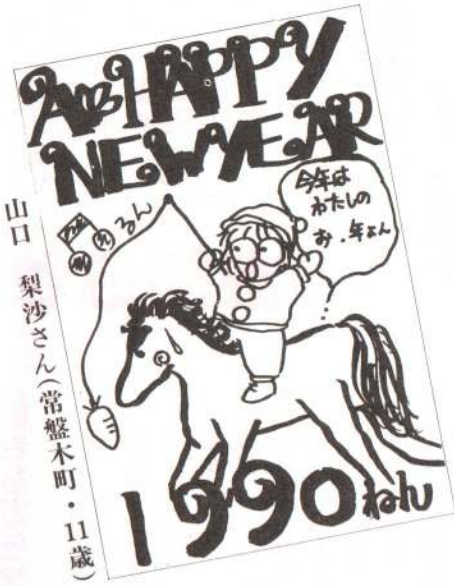 A HAPPY
NEW YEAR
今年は
わたしの
お.年よん
るん
1990ねん
山口 梨沙さん(常盤木町・11歳)